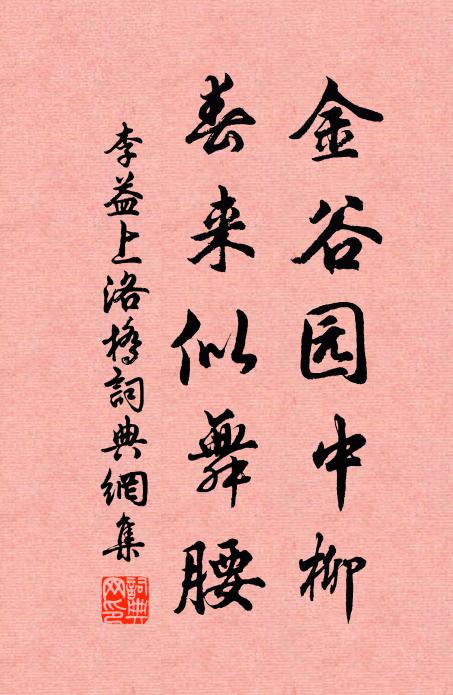 金谷园中柳
春来似舞腰
李益上洛橋詞典網集
詞典網印